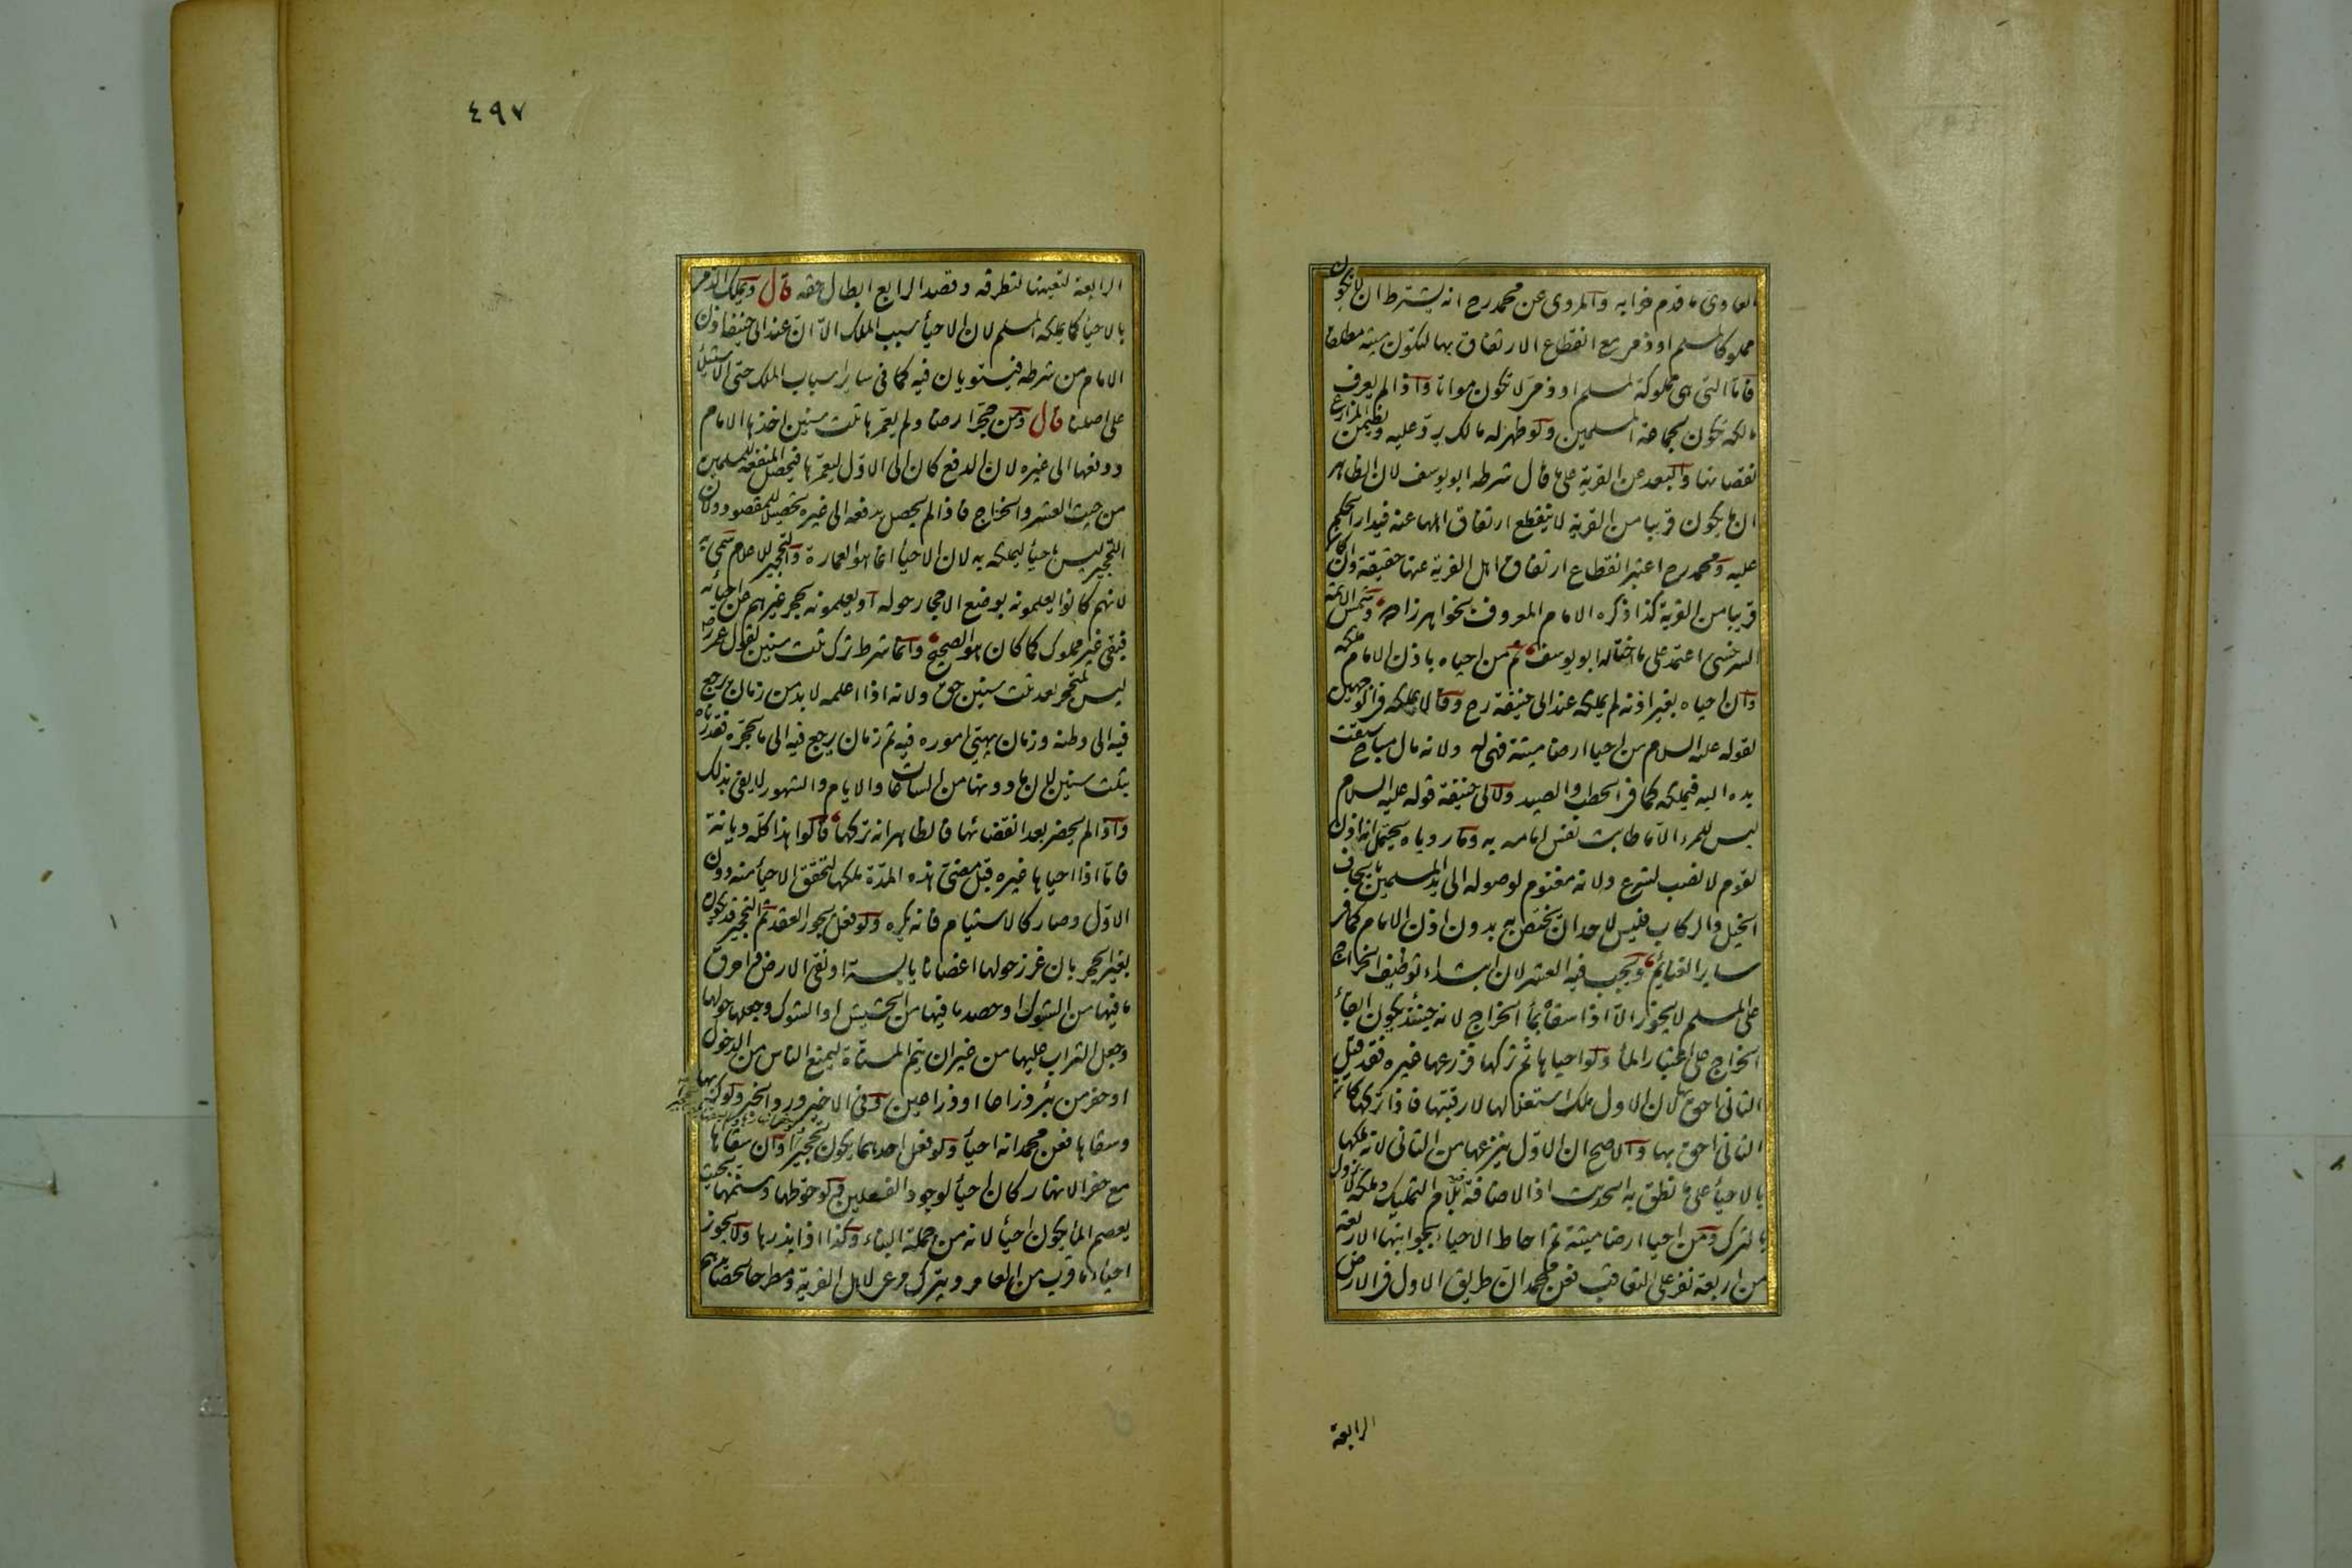 العادى ما قدم خرابه والمروى عن محمد رح انه يشترط ان لا يكون
مملوكا لمسلم او ذمى مع انقطاع الارتفاق بها لتكون ميتة مطلقا
فاما التى هى مملوكة لمسلم او ذمى لا تكون مواتا واذا لم يعرف
مالكه تكون لجماعة المسلمين ولو ظهر له مالك يرد عليه ويضمن المزارع
نقصانها والبعد عن القرية على ما قال شرطه ابو يوسف لان الظاهر
ان ما يكون قريبا من القرية لا ينقطع ارتفاق اهلها عنه فيدار الحكم
عليه ومحمد رح اعتبر انقطاع ارتفاق اهل القرية عنها حقيقة وان كان
قريبا من القرية كذا ذكره الامام المعروف بخواهرزاده وشمس الائمة
السرخسى اعتمد على ما اختاره ابو يوسف ثم من احياه باذن الامام ملكه
وان احياه بغير اذنه لم يملكه عند ابى حنيفة رح وقالا يملكه
لقوله عليه السلام من احيا ارضا ميتة فهى له ولانه مال مباح سبقت
يده اليه فيملكه كما فى الحطب والصيد ولابى حنيفة قوله عليه السلام
ليس للمرء الا ما طابت نفس امامه به وما روياه يحتمل انه اذن
لقوم لا نصب لشرع ولانه مغنوم لوصوله الى يد المسلمين بايجاف
الخيل والركاب فليس لاحد ان يختص به بدون اذن الامام كما فى
ساير الغنايم ويجب فيه العشر لان ابتداء توظيف الخراج
على المسلم لا يجوز الا اذا سقاه بماء الخراج لانه حينئذ يكون ابقاء
الخراج على اعتبار الماء ولو احياها ثم تركها فزرعها غيره فقد قيل
الثانى احق بها لان الاول ملك استغلالها لا رقبتها فاذا تركها كان
الثانى احق بها والاصح ان الاول ينزعها من الثانى لانه ملكها
بالاحياء على ما نطق به الحديث اذ الاضافة بلام التمليك وملكه لا يزول
بالترك ومن احيا ارضا ميتة ثم احاط الاحياء بجوانبها الاربعة
من اربعة نفر على التعاقب فعن محمد ان طريق الاول فى الارض
الرابعة
٤٩٧
الرابعة لتعينها لتطرقه وقصد الرابع ابطال حقه قال ويملك الذمى
بالاحياء كما يملكه المسلم لان الاحياء سبب الملك الا ان عند ابى حنيفة اذن
الامام من شرطه فيستويان فيه كما فى ساير اسباب الملك حتى الاستيلاء
على اصلنا قال ومن حجر ارضا ولم يعمرها ثلث سنين اخذها الامام
ودفعها الى غيره لان الدفع كان الى الاول ليعمرها فيحصل المنفعة للمسلمين
من حيث العشر والخراج فاذا لم يحصل يدفعه الى غيره تحصيلا للمقصود ولان
التحجير ليس باحياء ليملكه به لان الاحياء انما هو العمارة والتحجير للاعلام سمى به
لانهم كانوا يعلمونه بوضع الاحجار حوله او يعلمونه بحجر غيرهم عن احيائه
فبقى غير مملوك كما كان هو الصحيح وانما شرط ترك ثلث سنين لقول عمر رضه
ليس لمتحجر بعد ثلث سنين حق ولانه اذا اعلمه لا بد من زمان يرجع
فيه الى وطنه وزمان يهيئ اموره فيه ثم زمان يرجع فيه الى ما يحجره فقدرناه
بثلث سنين لان ما دونها من الساعات والايام والشهور لا يفى بذلك
واذا لم يحضر بعد انقضائها فالظاهر انه تركها قالوا هذا كله ديانة
فاما اذا احياها غيره قبل مضى هذه المدة ملكها لتحقق الاحياء منه دون
الاول وصار كالاستيام فانه يكره ولو فعل يجوز العقد ثم التحجير قد يكون
بغير الحجر بان غرز حولها اغصانا يابسة او نقى الارض واحرق
ما فيها من الشوك او حصد ما فيها من الحشيش او الشوك وجعلها حولها
وجعل التراب عليها من غير ان يتم المسناة ليمنع الناس من الدخول
او حفر من بئر ذراعا او ذراعين وفى الاخير ورد الخبر ولو كربها
وسقاها فعن محمد انه احياء ولو فعل احدهما يكون تحجيرا وان سقاها
مع حفر الانهار كان احياء لوجود الفعلين ولو حوطها وسنمها بحيث
يعصم الماء يكون احياء لانه من جملة البناء وكذا اذا بذرها ولا يجوز
احياء ما قرب من العامر ويترك مرعى لاهل القرية ومطرحا لحصائدهم